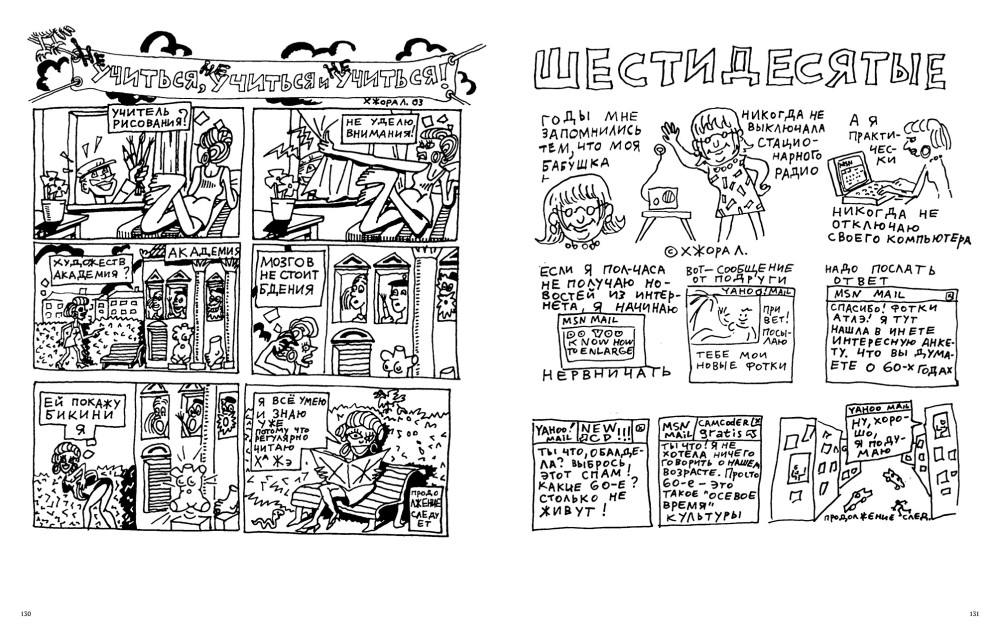 НЕ УЧИТЬСЯ, НЕ УЧИТЬСЯ И НЕ УЧИТЬСЯ!
ХЖОРА Л. 03
УЧИТЕЛЬ
РИСОВАНИЯ?
НЕ УДЕЛЮ
ВНИМАНИЯ!
ХУДОЖЕСТВ
АКАДЕМИЯ?
АКАДЕМИЯ
МОЗГОВ
НЕ СТОИТ
БДЕНИЯ
ЕЙ ПОКАЖУ
БИКИНИ
Я
Я ВСЁ УМЕЮ
И ЗНАЮ
УЖЕ
ПОТОМУ ЧТО
РЕГУЛЯРНО
ЧИТАЮ
Х^ЖЭ
ПРОДО
ЛЖЕНИЕ
СЛЕДУ
ЕТ
130
ШЕСТИДЕСЯТЫЕ
ГОДЫ МНЕ
ЗАПОМНИЛИСЬ
ТЕМ, ЧТО МОЯ
БАБУШКА
НИКОГДА НЕ
ВЫКЛЮЧАЛА
СТАЦИО-
НАРНОГО
РАДИО
А Я
ПРАКТИ-
ЧЕС-
КИ
MSN
НИКОГДА НЕ
ОТКЛЮЧАЮ
СВОЕГО КОМПЬЮТЕРА
© ХЖОРА Л.
ЕСЛИ Я ПОЛ-ЧАСА
НЕ ПОЛУЧАЮ НО-
ВОСТЕЙ ИЗ ИНТЕР-
НЕТА, Я НАЧИНАЮ
MSN MAIL
DO YOU
KNOW HOW
TO ENLARGE
НЕРВНИЧАТЬ
ВОТ — СООБЩЕНИЕ
ОТ ПОДРУГИ
YAHOO! MAIL
ПРИ
ВЕТ!
ПОСЫ-
ЛАЮ
ТЕБЕ МОИ
НОВЫЕ ФОТКИ
НАДО ПОСЛАТЬ
ОТВЕТ
MSN MAIL
СПАСИБО! ФОТКИ
АТЛЭ! Я ТУТ
НАШЛА В ИНЕТЕ
ИНТЕРЕСНУЮ АНКЕ-
ТУ. ЧТО ВЫ ДУМА-
ЕТЕ О 60-Х ГОДАХ
YAHOO!
MAIL
NEW
CD!!!
ТЫ ЧТО, ОБАЛДЕ-
ЛА? ВЫБРОСЬ
ЭТОТ СПАМ!
КАКИЕ 60-Е?
СТОЛЬКО НЕ
ЖИВУТ!
MSN
MAIL
CAMCODER
gratis
ТЫ ЧТО! Я НЕ
ХОТЕЛА НИЧЕГО
ГОВОРИТЬ О НАШЕМ
ВОЗРАСТЕ. ПРОСТО
60-Е — ЭТО
ТАКОЕ "ОСЕВОЕ
ВРЕМЯ"
КУЛЬТУРЫ
YAHOO MAIL
НУ, ХОРО-
ШО,
Я ПОДУ-
МАЮ
ПРОДОЛЖЕНИЕ СЛЕД.
131